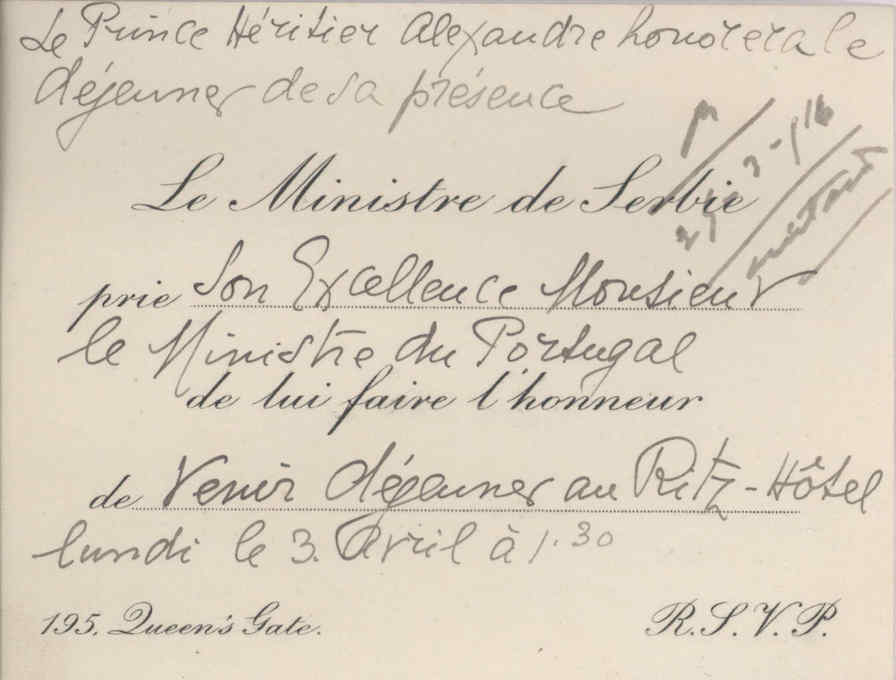 Le Prince Héritier Alexandre honorera le
déjeuner de sa présence
Le Ministre de Serbie
prie Son Excellence Monsieur
le Ministre du Portugal
de lui faire l'honneur
de venir déjeuner au Ritz-Hôtel
lundi le 3. Avril à 1.30
195, Queen's Gate.
R.S.V.P.